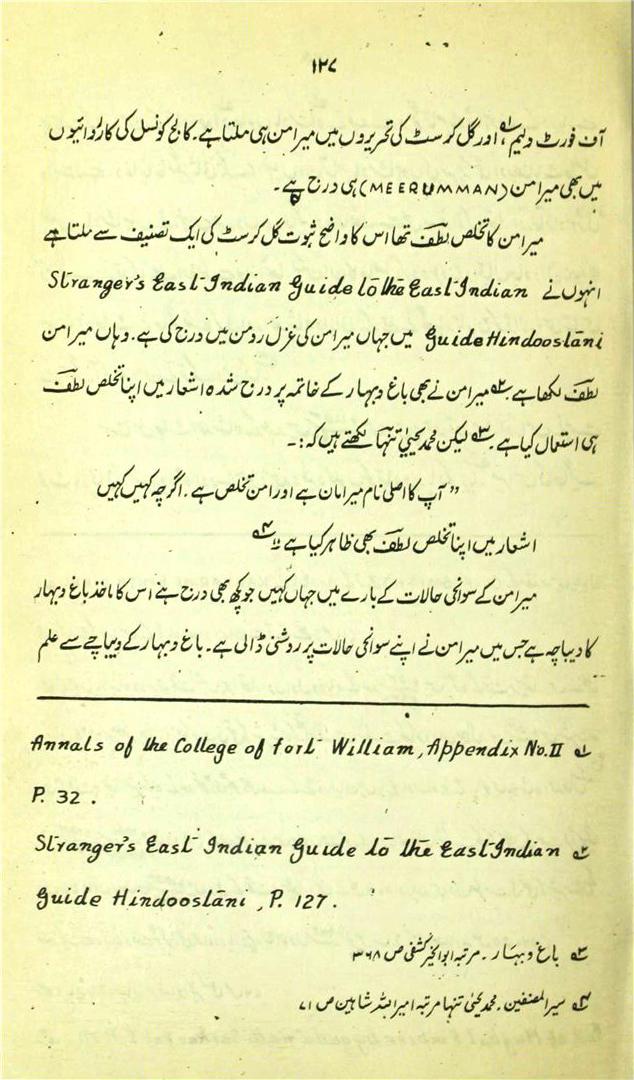 ۱۲۷
آف فورٹ ولیم؎۱، اور گل کرسٹ کی تحریروں میں میر امن ہی ملتا ہے۔ کالج کونسل کی کارروائیوں
میں بھی میر امن (MEERUMMAN) ہی درج ہے۔
میر امن کا تخلص لطفؔ تھا اس کا واضح ثبوت گل کرسٹ کی ایک تصنیف سے ملتا ہے
انہوں نے Stranger's East Indian Guide to the East Indian
Guide Hindoostani میں جہاں میر امن کی غزل رومن میں درج کی ہے۔ وہاں میر امن
لطفؔ لکھا ہے؎۲ میر امن نے بھی باغ و بہار کے خاتمہ پر درج شدہ اشعار میں اپنا تخلص لطفؔ
ہی استعمال کیا ہے؎۳ لیکن محمد یحییٰ تنہاؔ لکھتے ہیں کہ :۔
" آپ کا اصلی نام میر امان ہے اور امن تخلص ہے۔ اگرچہ کہیں کہیں
اشعار میں اپنا تخلص لطفؔ بھی ظاہر کیا ہے "؎۴
میر امن کے سوانحی حالات کے بارے میں جہاں کہیں جو کچھ بھی درج ہے اس کا ماخذ باغ و بہار
کا دیباچہ ہے جس میں میر امن نے اپنے سوانحی حالات پر روشنی ڈالی ہے۔ باغ و بہار کے دیباچے سے علم
؎۱ Annals of the College of fort William, Appendix No. II
P. 32 .
؎۲ Stranger's East Indian Guide to the East Indian
Guide Hindoostani , P. 127.
؎۳ باغ و بہار۔ مرتبہ ابوالخیر کشفی ص ۳۶۸
؎۴ سیر المصنفین۔ محمد یحییٰ تنہا مرتبہ امیر اللہ شاہین ص ۷۱